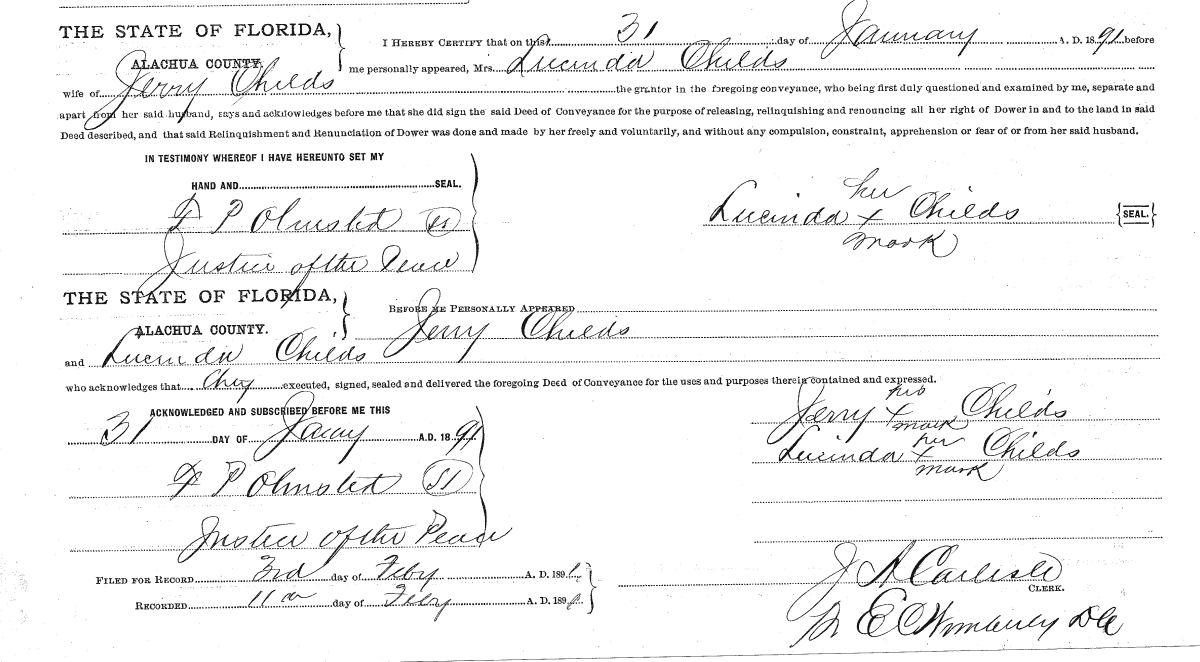 THE STATE OF FLORIDA,
ALACHUA COUNTY.
I HEREBY CERTIFY that on this 31 day of January A. D. 1891 before
me personally appeared, Mrs. Lucinda Childs
wife of Jerry Childs the grantor in the foregoing conveyance, who being first duly questioned and examined by me, separate and
apart from her said husband, says and acknowledges before me that she did sign the said Deed of Conveyance for the purpose of releasing, relinquishing and renouncing all her right of Dower in and to the land in said
Deed described, and that said Relinquishment and Renunciation of Dower was done and made by her freely and voluntarily, and without any compulsion, constraint, apprehension or fear of or from her said husband.
IN TESTIMONY WHEREOF I HAVE HEREUNTO SET MY
HAND AND SEAL.
P Olmsted
Justice of the Peace
her
Lucinda x Childs {SEAL.}
mark
THE STATE OF FLORIDA,
ALACHUA COUNTY.
BEFORE ME PERSONALLY APPEARED
Jerry Childs
and Lucinda Childs
who acknowledges that they executed, signed, sealed and delivered the foregoing Deed of Conveyance for the uses and purposes therein contained and expressed.
ACKNOWLEDGED AND SUBSCRIBED BEFORE ME THIS
31 DAY OF A.D. 1891
P Olmsted
Justice of the Peace
his
Jerry x Childs
mark
her
Lucinda x Childs
mark
FILED FOR RECORD 3rd day of Feby A. D. 1891
RECORDED 11th day of Feby A. D. 189
J A Carlisle
CLERK.
E C Wimberly DC